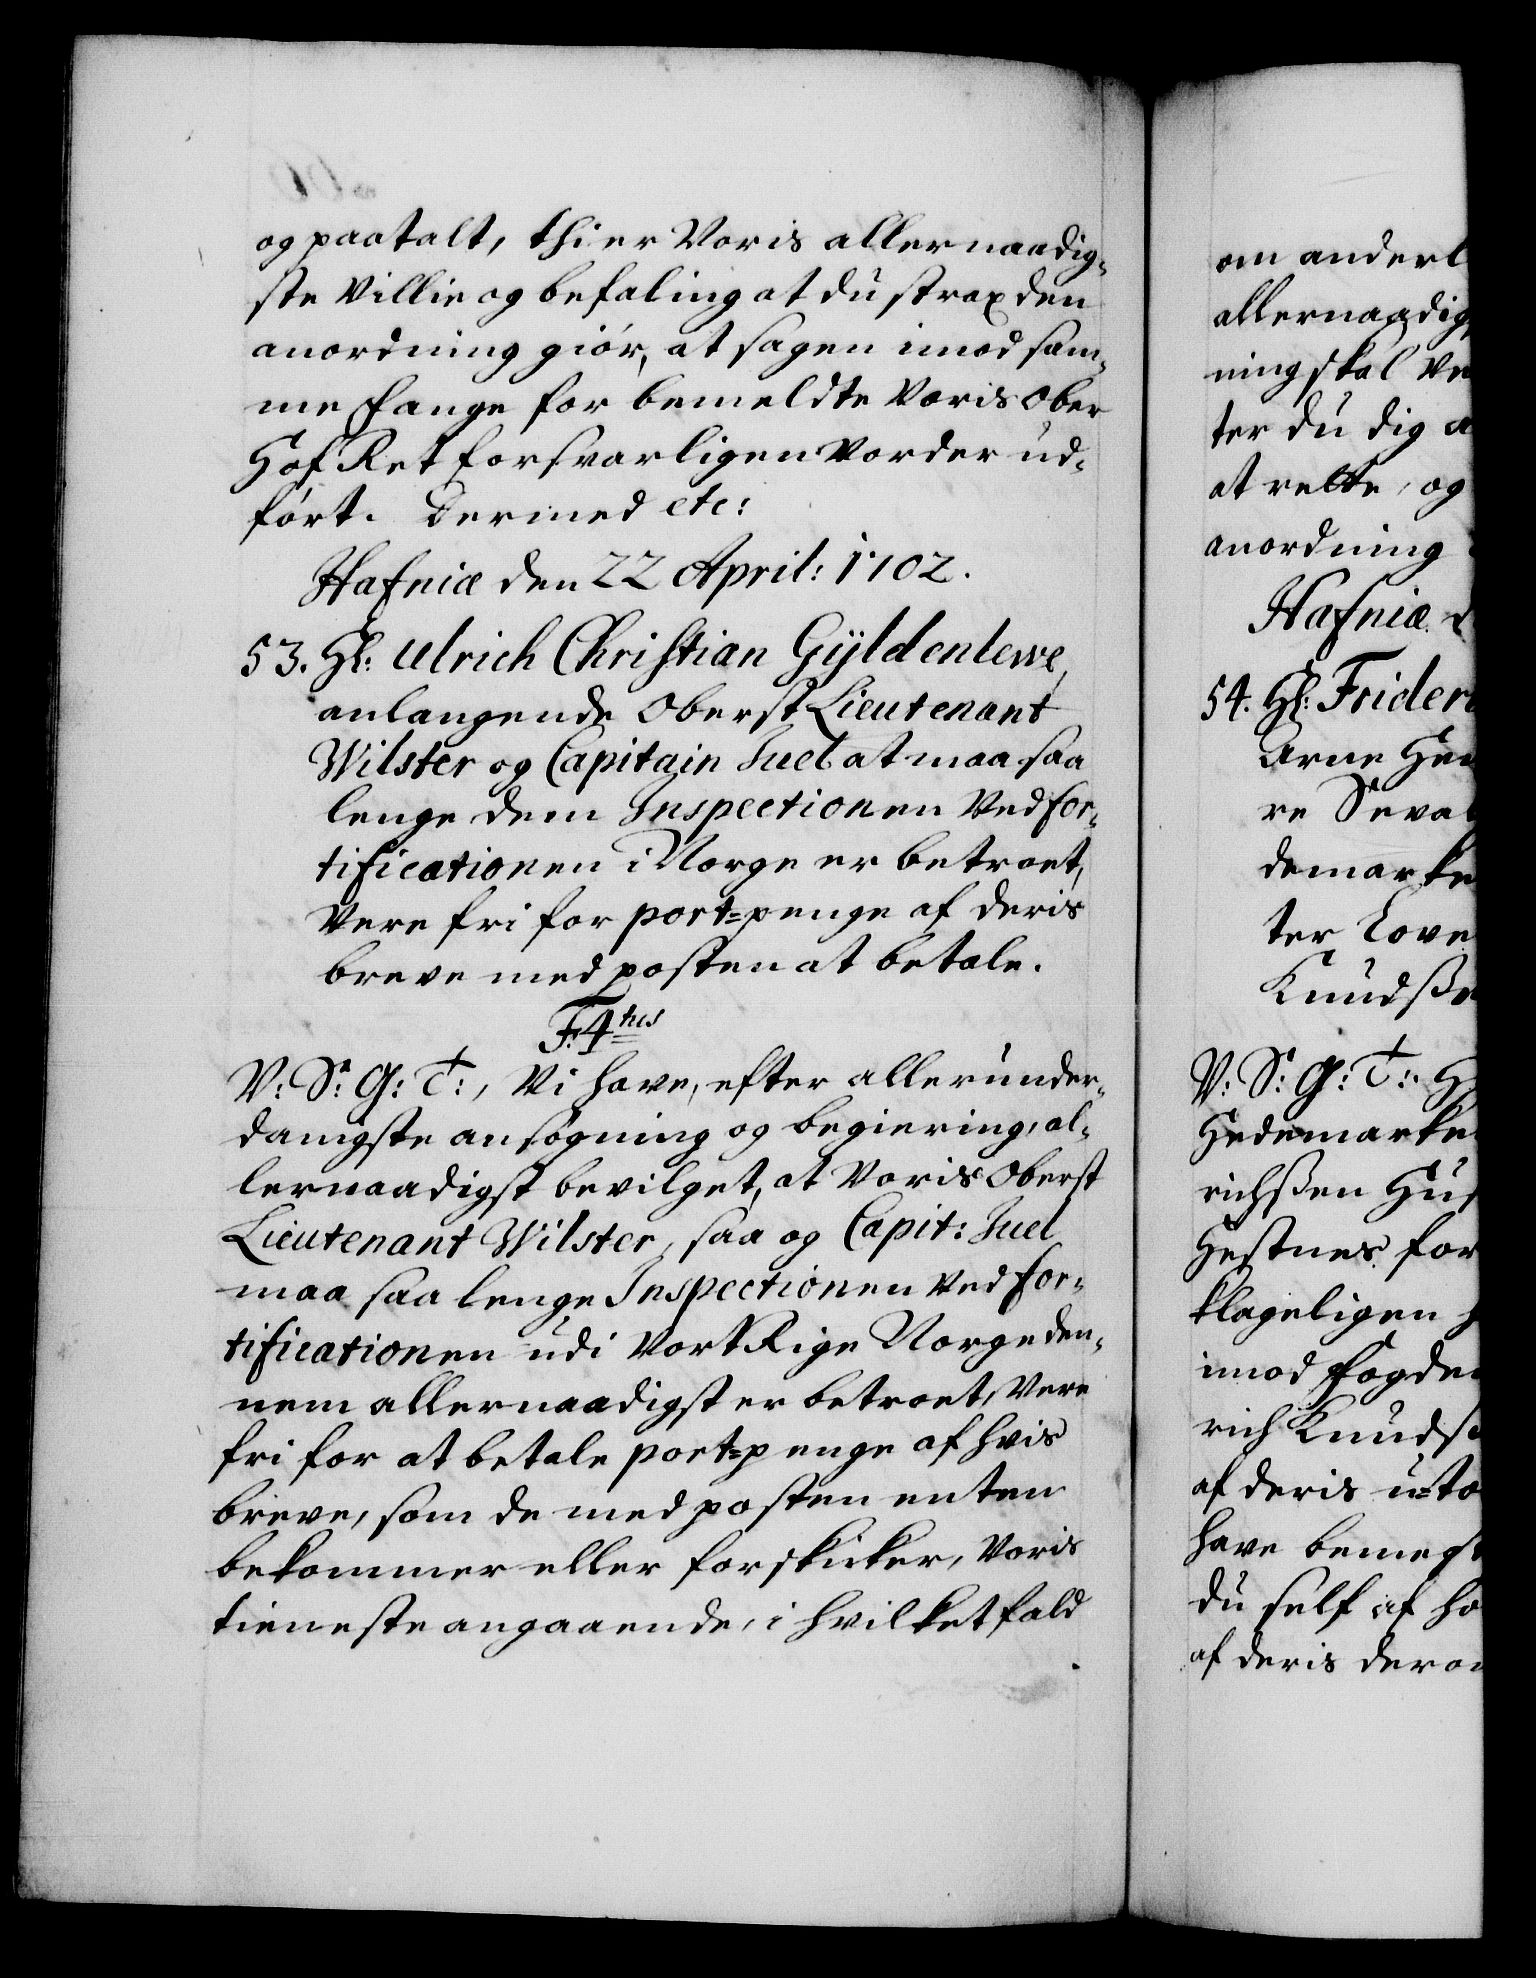 og paatalt, thi er Voris allernaadig-
ste Villie og befaling at du strax den
anordning giör, at sagen imod sam-
me fange for bemeldte Voris Ober
Hof Ret forsvarligen Vorder ud-
fört. Dermed etc:
Hafniæ den 22 April: 1702.
53. Hl: Ulrich Christian Gÿldenlewe,
anlangende Oberst Lieutenant
Wilster og Capitain Juel at maa saa
lenge dem Inspectionen Ved for-
tificationen i Norge er betroet,
Vere fri for port-penge af deris
breve med posten at betale.
F:4tus
V: S: G: T:, Vi have, efter allerunder-
danigste ansøgning og begiering, al-
lernaadigst bevilget, at Voris Oberst
Lieutenant Wilster, saa og Capit: Juel
maa saa lenge Inspectionen Ved for-
tificationen udi Vort Rige Norge den-
nem allernaadigst er betroet, Vere
fri for at betale port-penge af hvis
breve, som de med posten enten
bekommer eller forskicker, Voris
tieneste angaaende, i hvilket fald
om anderl
allernaadig
ning skal Ve
ter du dig a
at rette, og
anordning
Hafniæ d
54. Hl: Frider
Arne He
re Seval
demarke
ter Love
Knudße
V: S: G: T: H
Hedemarke
richßen Hus
Hestnes for
klageligen h
imod fogde
rich Knuds
af deris u-to
have bemegt
du self af ho
af deris dero